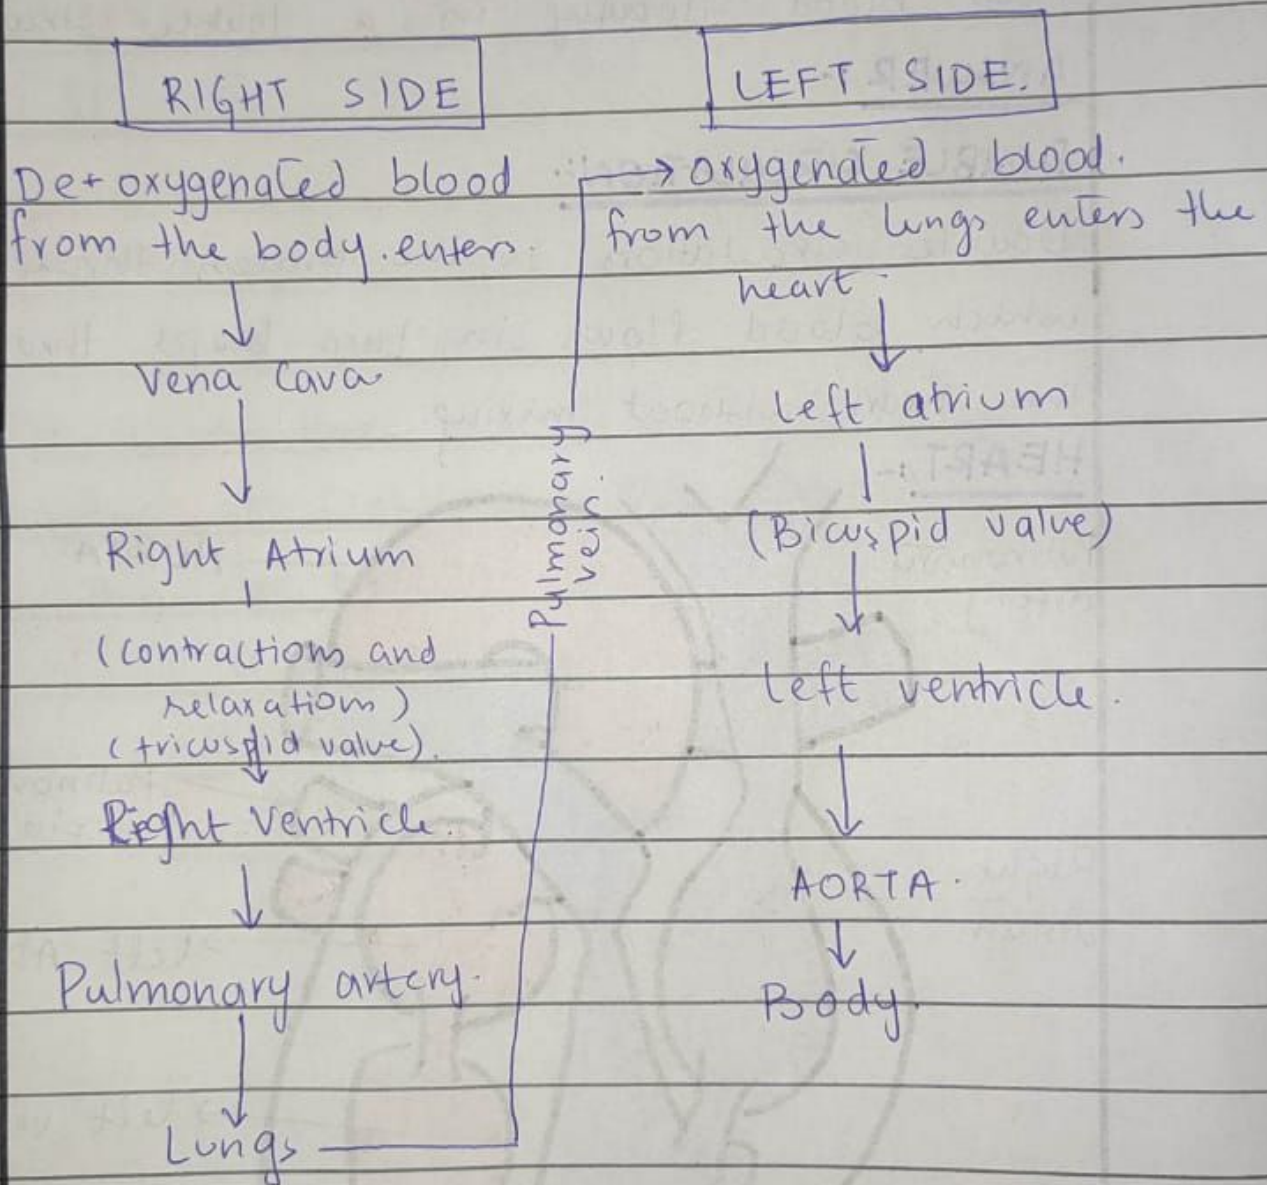 RIGHT SIDE
De-oxygenated blood
from the body enters.
Vena Cava
Right Atrium
(contractions and
relaxations)
(tricuspid valve).
Right Ventricle.
Pulmonary artery.
Lungs
Pulmonary
vein.
LEFT SIDE.
oxygenated blood.
from the lungs enters the
heart.
left atrium
(Bicuspid valve)
left ventricle.
AORTA.
Body.
HEART :-